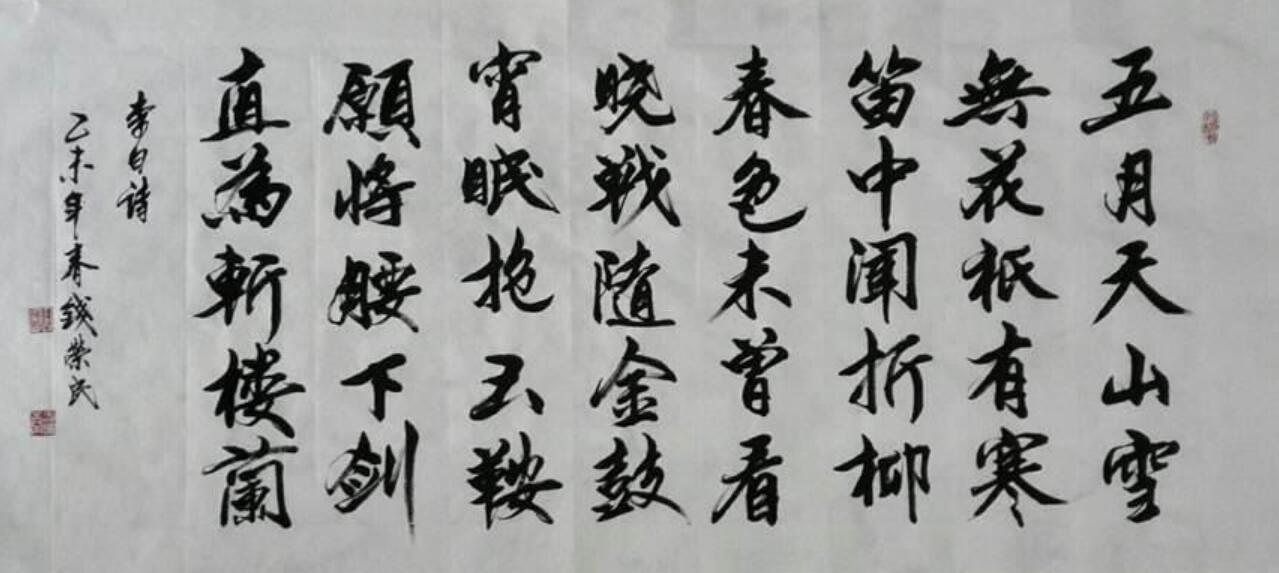 五月天山雪
無花祇有寒
笛中聞折柳
春色未曾看
晓戰随金鼓
宵眠抱玉鞍
願將腰下劍
直為斬楼蘭
李白詩
乙未年春錢榮民